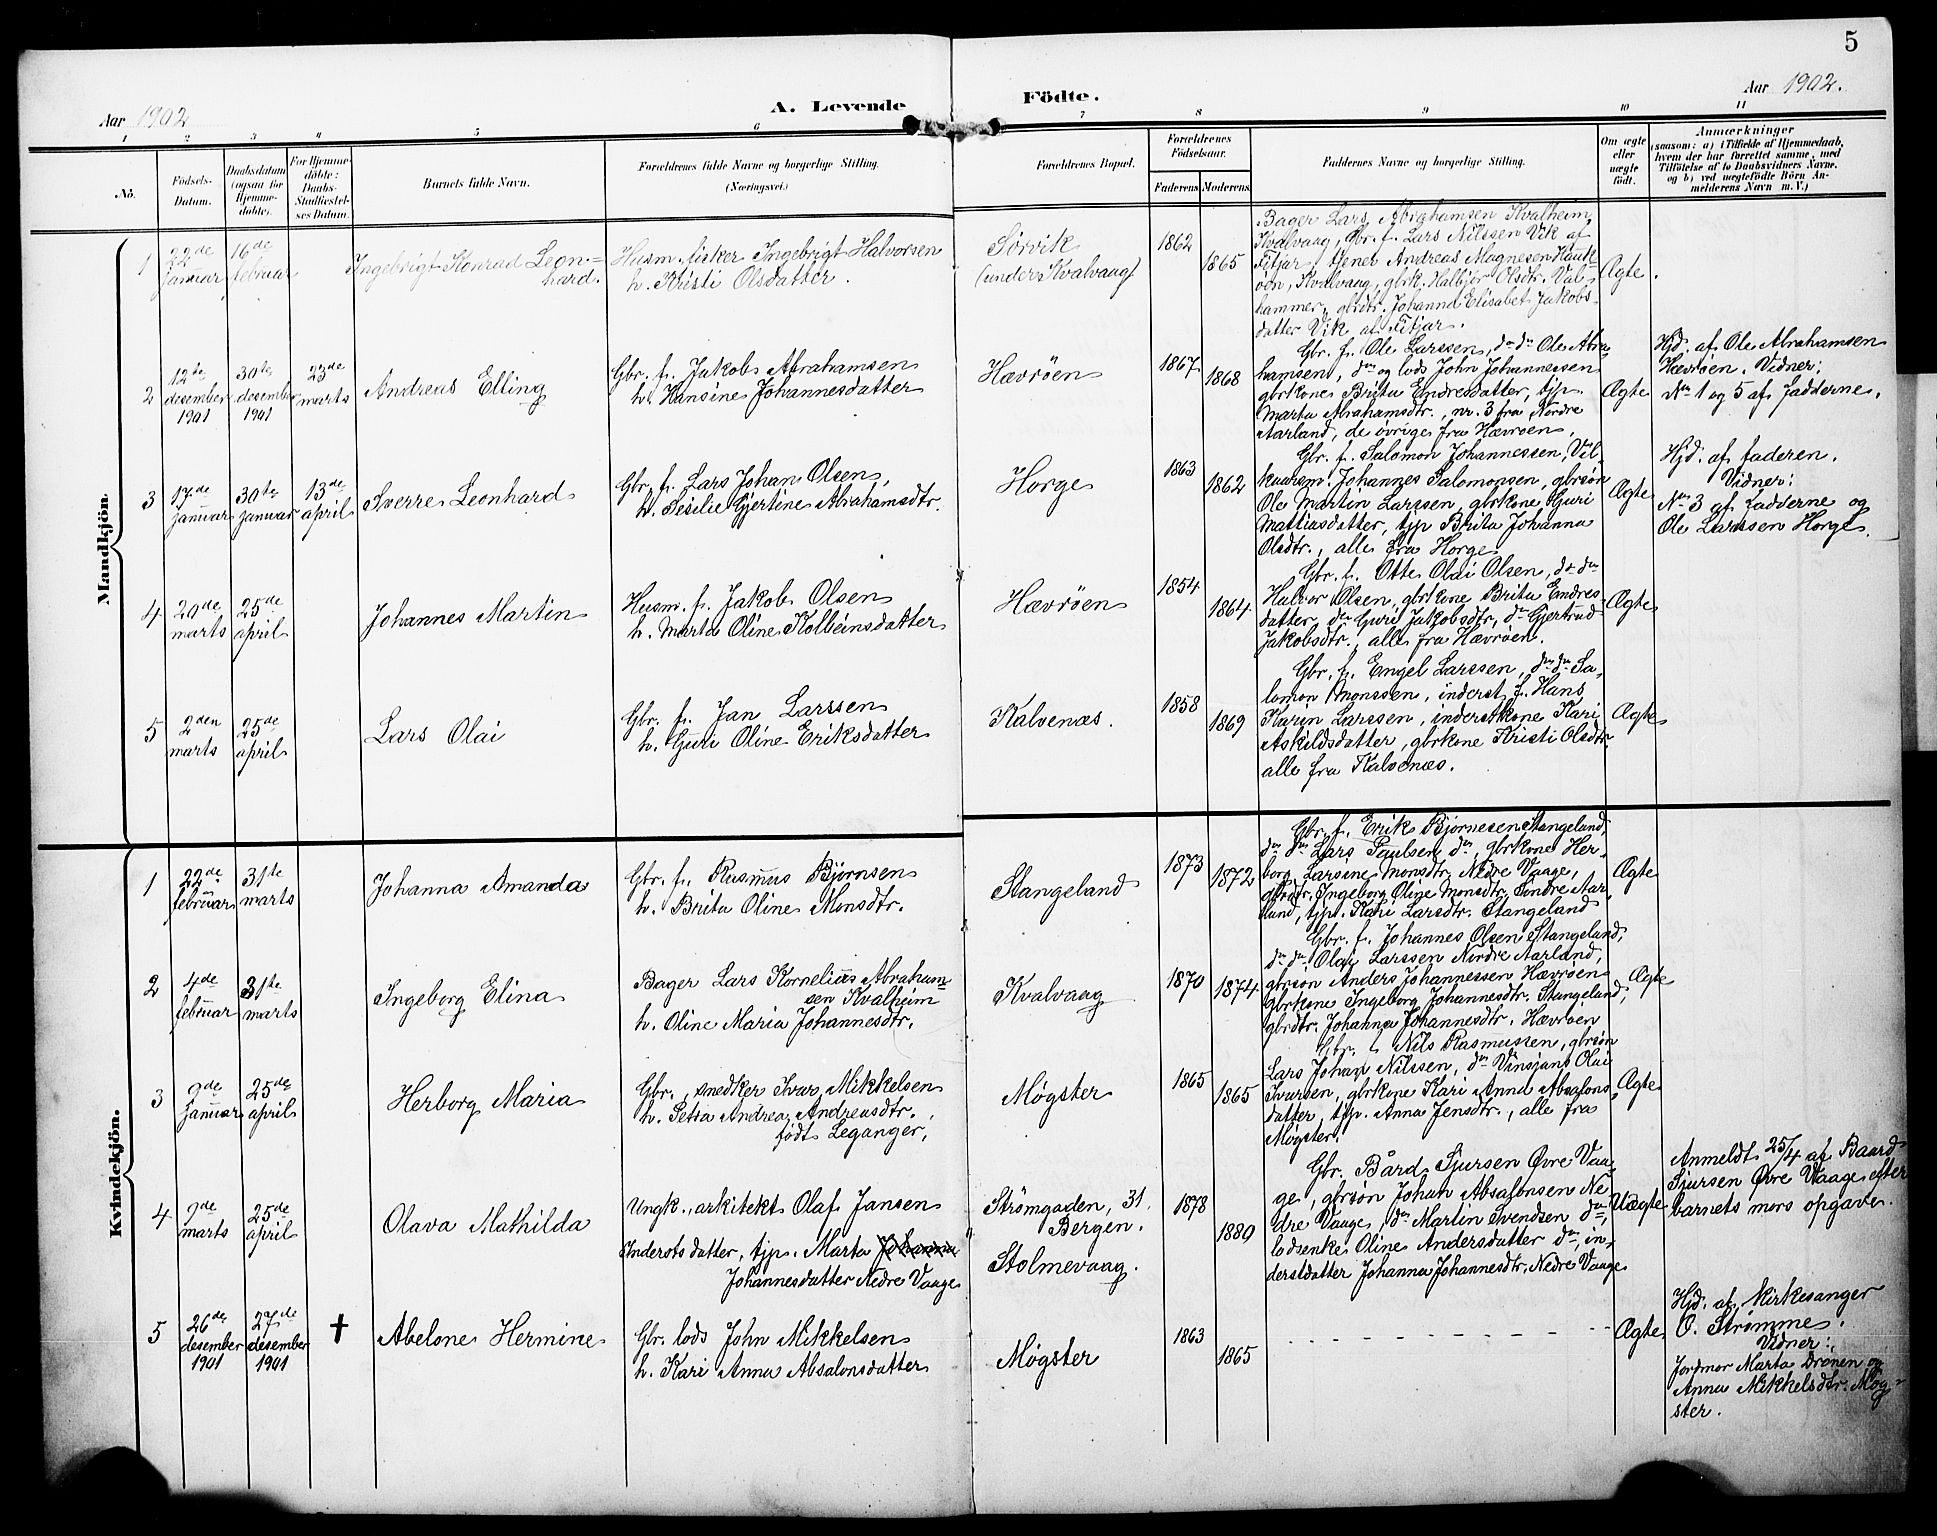 5
Aar 1902
A. Levende
Födte.
Aar 1902.
1 2 3 4 5 6 7 8 9 10 11
No.
Födsels-
Datum.
Daabsdatum
(ogsaa for
Hjemme-
døbte).
For Hjemme-
döbte:
Daabs-
Stadfæstel-
ses Datum.
Barnets fulde Navn.
Forældrenes fulde Navne og borgerlige Stilling.
(Næringsvei.)
Forældrenes Bopæl.
Forældrenes
Födselsaar.
Faderens
Moderens
Faddernes Navne og borgerlige Stilling.
Om ægte
eller
uægte
født.
Anmærkninger
(saasom: a) i Tilfælde af Hjemmedaab,
hvem der har forrettet samme, med
Tilføielse af to Daabsvidners Navne.
og b) ved uægtefødte Börn An-
melderens Navn m. V.)
Mandkjön.
1
22de
januar
16de
februar
Ingebrigt Konrad Leon-
hard.
Husm. fisker Ingebrigt Halvorsen
h. Kristi Olsdatter.
Sørvik
(under Kvalvaag)
1862
1865
Bager Lars Abrahamsen Kvalheim,
Kvalvaag, Gbr. f. Lars Nilssen Vik af
Fitjar, tjener Andreas Magnesen Hauk-
øen, Kvalvaag, gbrk. Halbjør Olsdtr. Val-
hammer, gbrdtr. Johanna Elisabet Jakobs-
datter Vik af Fitjar.
Ægte
2
12te
desember
1901
30te
desember
1901
23de
marts
Andreas Elling
Gbr. f. Jakob Abrahamsen
h. Hansine Johannesdatter
Hævrøen
1867
1868
Gbr. f. Ole Larssen, do do Ole Abra-
hamsen, do og lods John Johannessen
gbrkone Brita Endresdatter, tjp.
Marta Abrahamsdtr., nr. 3 fra Nordre
Aarland, de øvrige fra Hævrøen.
Ægte
Hjd. af Ole Abrahamsen
Hævrøen. Vidner:
No 1 og 5 af fadderne.
3
17de
januar
30te
januar
13de
april
Sverre Leonhard
Gbr. f. Lars Johan Olsen,
h. Sesilie Gjertine Abrahamsdtr.
Horge
1863
1862
Gbr. f. Salomon Johannessen, Vil-
kaarsm. Johannes Salomonsen, gbrsøn
Ole Martin Larssen, gbrkone Guri
Mattiasdatter, tjp Brita Johanna
Olsdtr., alle fra Horge
Ægte
Hjd. af faderen.
Vidner:
No 3 af fadderne og
Ole Larssen Horge.
4
20de
marts
25de
april
Johannes Martin
Husm. f. Jakob Olsen
h. Marta Oline Kolbeinsdatter
Hævrøen
1854
1864
Gbr. f. Otte Olai Olsen, do do
Halvor Olsen, gbrkone Brita Endres
datter, do Guri Jakobsdtr, do Gjertrud
Jakobsdtr., alle fra Hævrøen.
Ægte
5
2den
marts
25de
april
Lars Olai
Gbr. f. Jan Larssen
h. Guri Oline Eriksdatter
Kalvenæs.
1858
1869
Gbr. f. Engel Larssen, do do Sa-
lomon Monssen, inderst f. Hans
Karin Larssen, inderstkone Kari
Askildsdatter, gbrkone Kristi Olsdtr
alle fra Kalvenæs.
Ægte
Kvindekjön.
1
22de
februar
31te
marts
Johanna Amanda
Gbr. f. Rasmus Bjørnsen
h. Brita Oline Monsdtr.
Stangeland
1873
1872
Gbr. f. Erik Bjørnesen Stangeland,
do do Lars Paulsen do, gbrkone Her-
borg Larsine Monsdtr. Nedre Vaage,
gbrdtr. Ingeborg Oline Monsdtr. Søndre Aar-
land, tjp. Kari Larsdtr. Stangeland
Ægte
2
4de
februar
31te
marts
Ingeborg Elina
Bager Lars Kornelius Abraham
sen Kvalheim
h. Oline Maria Johannesdtr.
Kvalvaag
1870
1874
Gbr. f. Johannes Olsen Stangeland,
do do Olai Larssen Nordre Aarland,
gbrsøn Anders Johannessen Hævrøen
Gbrkone Ingeborg Johannesdtr. Stangeland,
gbrdtr. Johanna Johannesdtr. Hævrøen
Ægte
3
9de
januar
25de
april
Herborg Maria
Gbr., snedker Ivar Mikkelsen
h. Petra Andrea Andreasdtr.
født Leganger,
Møgster
1865
1865
Gbr. Nils Rasmussen, gbrsøn
Lars Johan Nilssen, do Vinsjans Olai
Ivarsen, gbrkone Kari Anna Absalons
datter, tjp. Anna Jensdtr., alle fra
Møgster.
Ægte
4
9de
marts
25de
april
Olava Mathilda
Ungk., arkitekt Olaf Jansen
Inderstsdatter, tjp. Marta Johanna
Johannesdatter Nedre Vaage
Strømgaden, 31,
Bergen.
Stolmevaag.
1878
1880
Gbr. Bård Sjursen Øvre Vaa-
ge, gbrsøn Johan Absalonsen Ne
dre Vaage, do Martin Svendsen do,
lodsenke Oline Andersdatter do, in-
derstdatter Johanna Johannesdtr. Nedre Vaage
Uægte
Anmeldt 25/4 af Baard
Sjursen Øvre Vaage efter
barnets mors opgave.
5
26de
desember
1901
27de
desember
1901
†
Abelone Hermine
Gbr. lods John Mikkelsen
h. Kari Anna Absalonsdatter
Møgster
1863
1865
Ægte
Hjd. af Kirkesanger
O. Strømme.
Vidner:
Jordmor Marta Drønen og
Anna Mikkelsdtr. Møg-
ster.